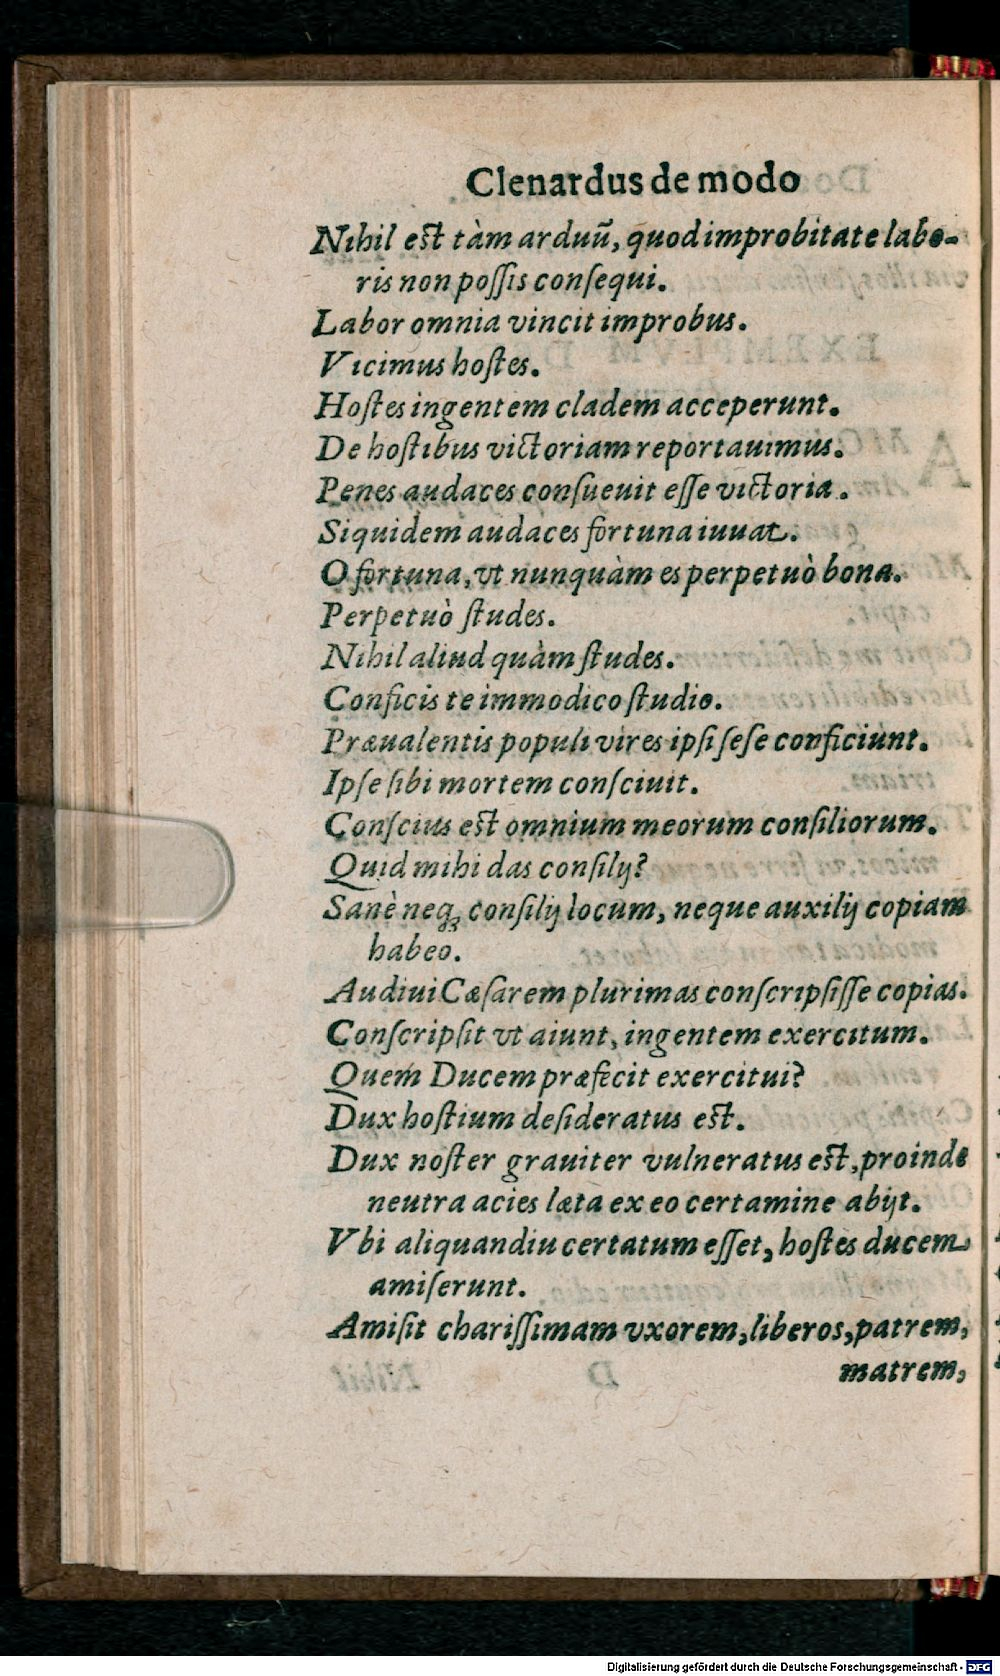 Clenardus de modo
Nihil est tàm arduũ, quod improbitate labo-
ris non poſſis conſequi.
Labor omnia vincit improbus.
Vicimus hoſtes.
Hoſtes ingentem cladem acceperunt.
De hoſtibus victoriam reportauimus.
Penes audaces conſueuit eſſe victoria.
Siquidem audaces fortuna iuuat.
O fortuna, vt nunquàm es perpetuò bona.
Perpetuò ſtudes.
Nihil aliud quàm ſtudes.
Conficis te immodico ſtudio.
Præualentis populi vires ipſi ſeſe conficiunt.
Ipſe ſibi mortem conſciuit.
Conſcius est omnium meorum conſiliorum.
Quid mihi das conſilij?
Sanè neq; conſilij locum, neque auxilij copiam
habeo.
Audiui Cæſarem plurimas conſcripſiſſe copias.
Conſcripſit vt aiunt, ingentem exercitum.
Quem Ducem præfecit exercitui?
Dux hoſtium deſideratus est.
Dux noſter grauiter vulneratus est, proinde
neutra acies læta ex eo certamine abijt.
Vbi aliquandiu certatum eſſet, hoſtes ducem
amiſerunt.
Amiſit chariſſimam vxorem, liberos, patrem,
matrem,
Digitalisierung gefördert durch die Deutsche Forschungsgemeinschaft - DFG